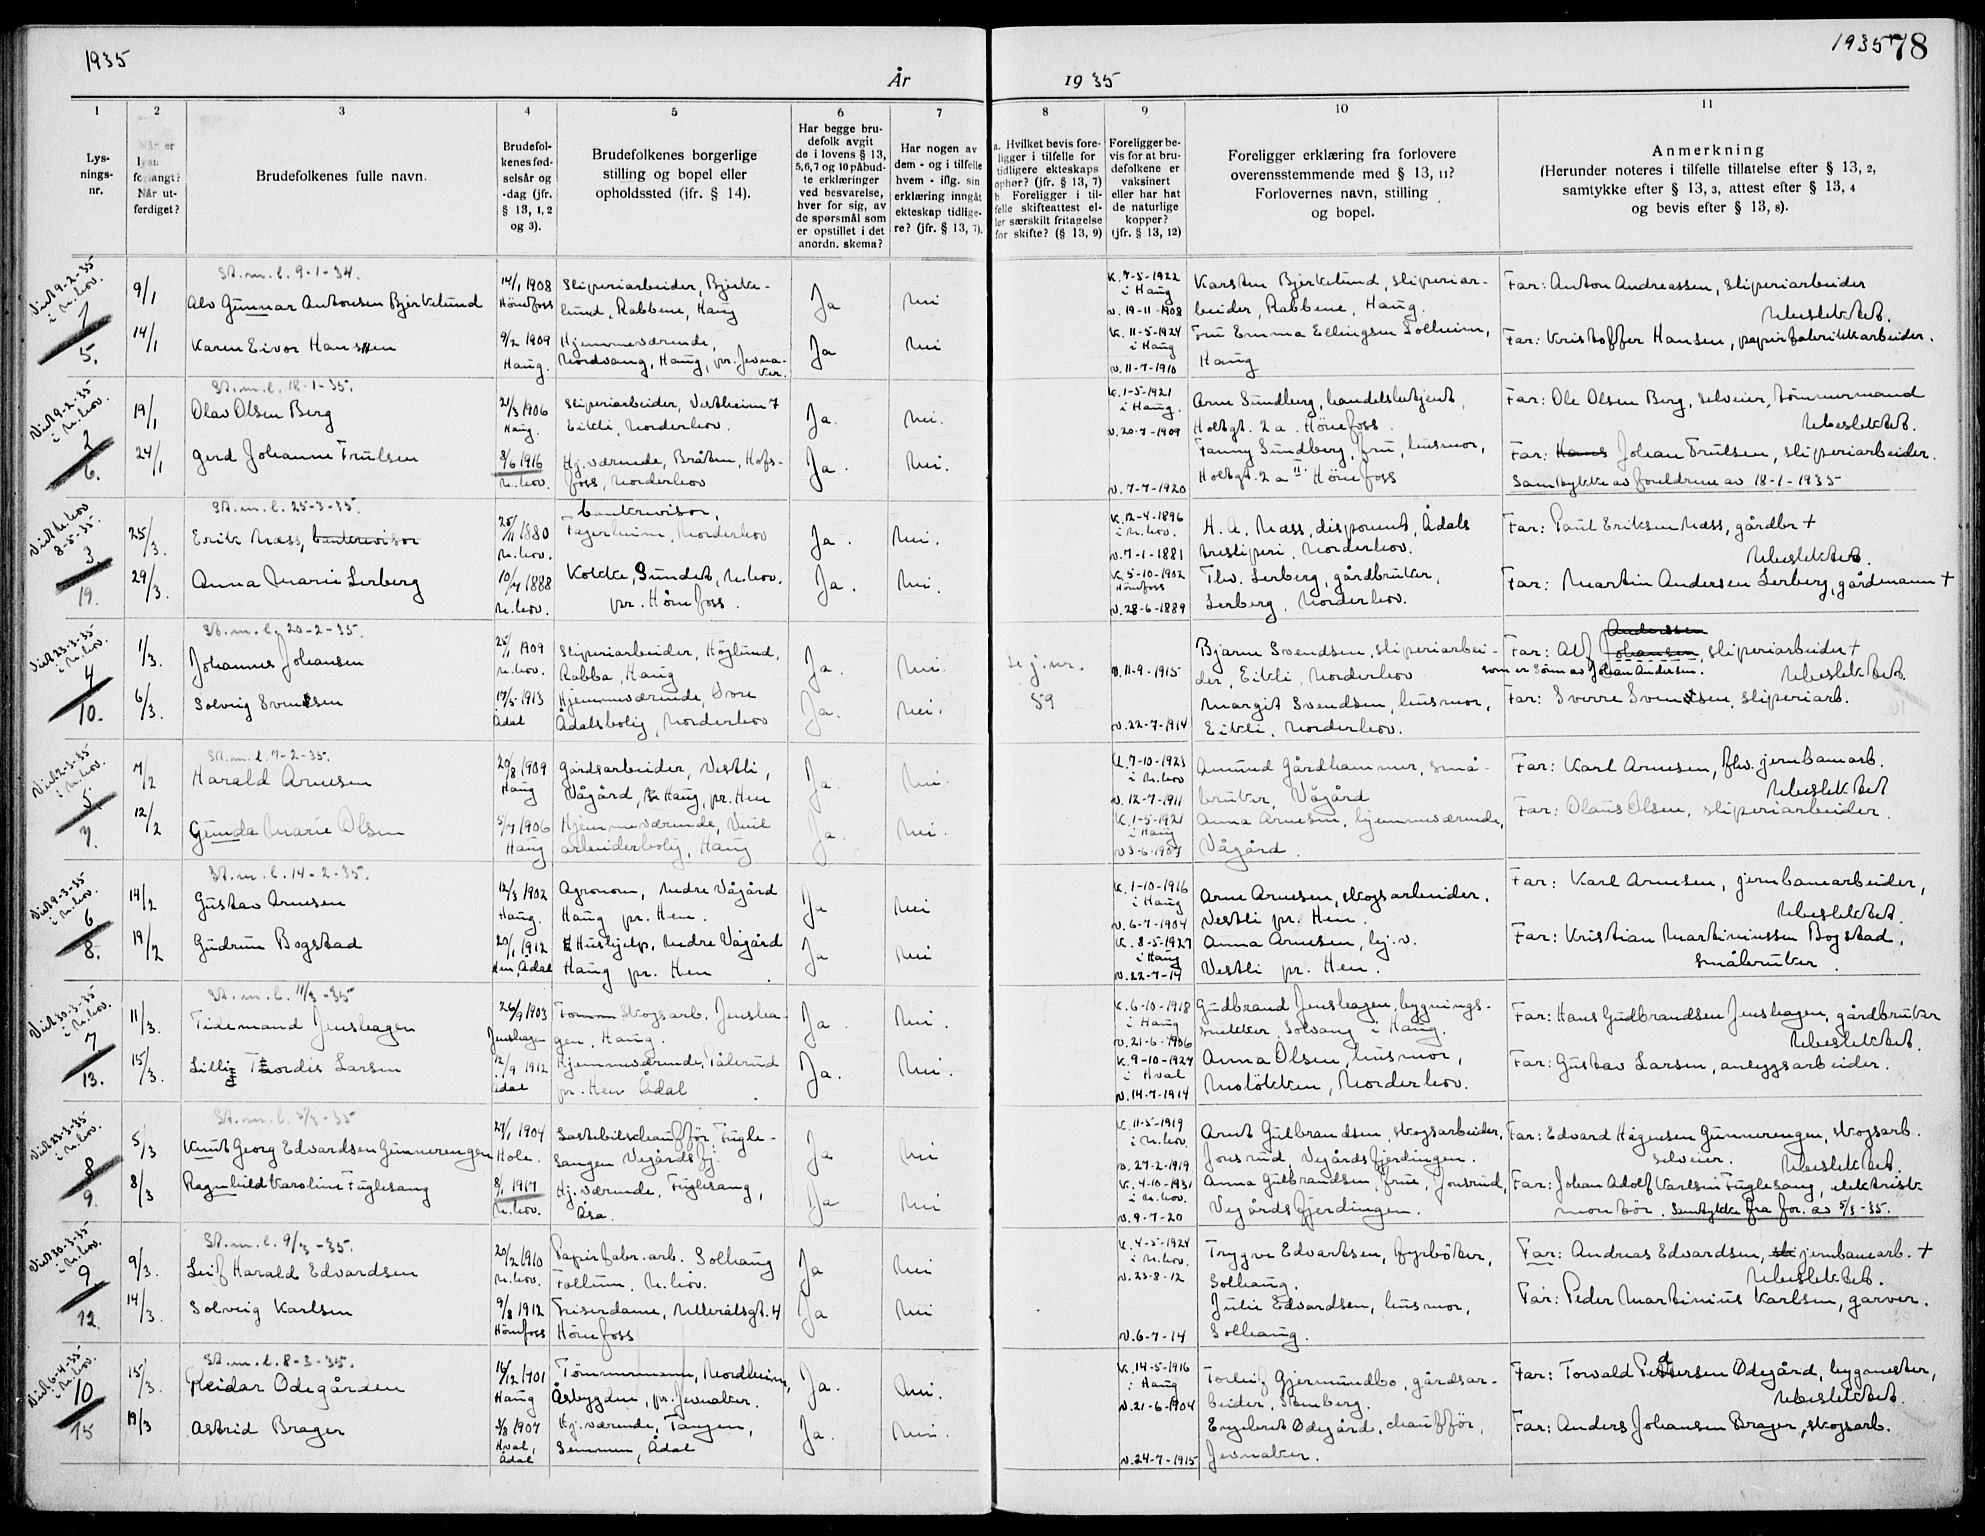 1935
År
1935
1935 78
1
2
3
4
5
6
7
8
9
10
11
Lys-
nings-
nr.
Når er
lysn
forlangt?
Når ut-
ferdiget?
Brudefolkenes fulle navn.
Brudefol-
kenes fød-
selsår og
-dag (jfr.
§ 13, 1, 2
og 3).
Brudefolkenes borgerlige
stilling og bopel eller
opholdssted (jfr. § 14).
Har begge bru-
defolk avgit
de i lovens § 13,
5,6,7 og 10 påbud-
te erklæringer
ved besvarelse,
hver for sig, av
de spørsmål som
er opstillet i det
anordn. skema?
Har nogen av
dem - og i tilfelle
hvem - iflg. sin
erklæring inngått
ekteskap tidlige-
re? (jfr. § 13, 7).
a. Hvilket bevis fore-
ligger i tilfelle for
tidligere ekteskaps
ophør? (jfr. § 13, 7)
b. Foreligger i til-
felle skifteattest el-
ler særskilt fritagelse
for skifte? (§ 13, 9)
Foreligger be-
vis for at bru-
defolkene er
vaksinert
eller har hat
de naturlige
kopper?
(jfr. § 13, 12)
Foreligger erklæring fra forlovere
overensstemmende med § 13, 11?
Forlovernes navn, stilling
og bopel.
Anmerkning
(Herunder noteres i tilfelle tillatelse efter § 13, 2,
samtykke efter § 13, 3, attest efter § 13, 4
og bevis efter § 13, 8).
Viet 9-2-35
i N.hov.
1
5.
9/1
St.m.l. 9-1-34.
Alv Gunnar Antonsen Bjerkelund
14/1 1908
Hönefoss
Sliperiarbeider, Bjerke-
lund, Rabbene, Haug
Ja
Nei
K. 7-5-1922
i Haug
v. 19-11-1908
Karsten Bjerkelund, sliperiar-
beider, Rabbene, Haug.
Far: Anton Andreassen, sliperiarbeider
Ubeslektet.
14/1
Karen Eivor Hansen
9/2 1909
Haug.
Hjemmeværende,
Nordvang, Haug, pr. Jevna-
ker.
Ja
Nei
K. 11-5-1924
i Haug
v. 11-7-1910
Fru Emma Ellingsen Solheim,
Haug
Far: Kristoffer Hansen, papirfabrikkarbeider.
Viet 9-2-35
i N.hov.
2
6.
19/1
St.m.l. 18-1-35.
Olav Olsen Berg
21/3 1906
Haug.
Sliperiarbeider, Vestheim 7
Eikli, Norderhov.
Ja.
Nei.
K. 1-5-1921
i Haug.
v. 20-7-1909
Arne Sundberg, handelsbetjent,
Holtgt. 2 a. Hönefoss.
Far: Ole Olsen Berg, selveier, tömmermand
Ubeslektet.
24/1
Gerd Johanne Trulsen
8/6 1916
N.hov.
Hj.værende, Bråten, Hofs-
foss, Norderhov
Ja.
Nei.
v. 7-7-1920
Fanny Sundberg, fru, husmor,
Holtgt. 2 a II Hönefoss
Far: Hans Johan Trulsen, sliperiarbeider.
Samtykke av foreldrene av 18-1-1935
Viet N.hov
8-5-35.
3
19.
25/3.
St.m.l. 25-3-35.
Erik Næss, bankrevisor
25/11 1880
N.hov.
bankrevisor,
Fagerheim, Norderhov
Ja.
Nei.
K. 12-4-1896
i N.hov.
v. 7-1-1881
H. A. Næss, disponent, Ådals
tresliperi, Norderhov.
Far: Paul Eriksen Næss, gårdbr +
Ubeslektet.
29/3.
Anna Marie Lerberg
10/7 1888
N.hov.
Kokke, Sundet, N.hov.
pr. Hönefoss.
Ja.
Nei.
K. 5-10-1902
Hönefoss
v. 28-6-1889
Thv. Lerberg, gårdbruker,
Lerberg, Norderhov.
Far: Martin Andersen Lerberg, gårdmann +
Viet 23-3-35
i N.hov.
4
10.
1/3.
St.m.l. 20-2-35.
Johannes Johansen
25/1 1909
N.hov.
Sliperiarbeider, Höglund,
Rabba, Haug
Ja.
Nei.
Se j.nr.
59
v. 11-9-1915
Bjarne Svendsen, sliperiarbei-
der, Eikli, Norderhov
Anderssen
Far: Alf Johansen, sliperiarbeider +
som er Sönn av Johan Andersen.
Ubeslektet.
6/3.
Solveig Svendsen
17/5 1913
Ådal
Hjemmeværende, Övre
Ådalsbolig, Norderhov
Ja.
Nei.
v. 22-7-1914
Margit Svendsen, husmor,
Eikli, Norderhov.
Far: Sverre Svendsen, sliperiarb.
Viet 2-3-35
i N.hov.
5
7.
7/2
St.m.l. 7-2-35.
Harald Arnesen
20/8 1909
Haug
Gårdsarbeider, Vestli,
Vågård, Haug, pr. Hen
Ja.
Nei.
K. 7-10-1923
i N.hov
v. 12-7-1911
Amund Gårdhammer, små-
bruker, Vågård
Far: Karl Arnesen, fhv. jernbanearb.
Ubeslektet
12/2
Gunda Marie Olsen
5/7 1906
Haug
Hjemmeværende, Veul
arbeiderbolig, Haug
Ja.
Nei.
K. 1-5-1921
i Haug
v. 3-6-1907
Anna Arnesen, hjemmeværende,
Vågård.
Far: Olaus Olsen, sliperiarbeider.
Viet 9-3-35
i N.hov.
6
8.
14/2
St.m.l. 14-2-35.
Gustav Arnesen
12/3 1902
Haug.
Agronom, Nedre Vågård
Haug pr. Hen.
Ja
Nei
K. 1-10-1916
i Haug
v. 6-7-1904
Arne Arnesen, skogsarbeider.
Vestli pr. Hen.
Far: Karl Arnesen, jernbanearbeider,
Ubeslektet.
19/2
Gudrun Bogstad
20/1 1912
Hen, Ådal
Hushjelp, Nedre Vågård
Haug pr. Hen
Ja
Nei
K. 8-5-1927
i Haug
v. 22-7-14
Anna Arnesen, hj.v.
Vestli pr. Hen.
Far: Kristian Martiniussen Bogstad,
småbruker.
Viet 30-3-35
i N.hov.
7
13.
11/3.
St.m.l. 11/3-35
Tidemand Jenshagen
26/9 1903
Jenshagen
Skogsarb. Jensha-
gen, Haug.
Ja.
Nei.
K. 6-10-1918
i Haug
v. 21-6-1906
Gudbrand Jenshagen, bygnings-
snekker, Solvang i Haug.
Far: Hans Gudbrandsen Jenshagen, gårdbruker
Ubeslektet.
15/3.
Lilly Thordis Larsen
12/9 1912
Ådal
Hjemmeværende, Pålerud
pr. Hen Ådal
Ja.
Nei.
K. 9-10-1927
i Hval
v. 14-7-1914
Anna Olsen, husmor,
Molökken, Norderhov.
Far: Gustav Larsen, anleggsarbeider.
Viet 23-3-35
i N.hov.
8
9.
5/3
St.m.l. 5/3-35
Knut Georg Edvardsen Gunnerengen
27/1 1904
Hole.
Lastebilschaufför, Fugle-
sangen Vegårdsfj.
Ja
Nei
K. 11-5-1919
i N.hov.
v. 27-2-1919
Arnt Gulbrandsen, skogsarbeider,
Jonsrud, Vegårdsfjerdingen.
Far: Edvard Hågensen Gunnerengen, skogsarb.
selveier. Ubeslektet.
8/3
Ragnhild Karoline Fuglesang
8/1 1917
N.hov.
Hj.værende, Fuglesang,
Åsa.
Ja
Nei
K. 4-10-1931
i N.hov.
v. 9-7-20
Anna Gulbrandsen, frue, Jonsrud,
Vegårdsfjerdingen.
Far: Johan Adolf Karlsen Fuglesang, elektrisk
montör. Samtykke fra for. av 5/3-35.
Viet 30-3-35
i N.hov.
9
12.
9/3.
St.m.l. 9/3-35.
Leif Harald Edvardsen
20/2 1910
N.hov.
Papirfabr.arb. Solhaug
Follum, N.hov.
Ja
Nei
K. 4-5-1924
i N.hov.
v. 23-8-12
Trygve Edvartsen, fyrböter,
Solhaug.
Far: Andreas Edvardsen, sli jernbanearb. +
Ubeslektet.
14/3.
Solveig Karlsen
9/8 1912
Hönefoss
Friserdame, Nitterålsgt. 4
Hönefoss
Ja
Nei
v. 6-7-14
Julie Edvardsen, husmor,
Solhaug.
Far: Peder Martinius Karlsen, garver.
Viet 6-4-35
i N.hov.
10
15
15/3.
St.m.l. 8-3-35.
Reidar Ödegården
16/12 1901
Haug
Tömmermann, Nordheim,
Åsbygden, pr. Jevnaker.
Ja.
Nei.
K. 14-5-1916
i Haug
v. 21-6-1904
Torleif Gjermundbo, gårdsar-
beider, Stenberg.
Far: Torvald Pedersen Ödegård, bygmester,
Ubeslektet.
19/3
Astrid Brager
3/8 1907
Hval,
Ådal
Hj.værende, Tangen,
Semmen, Ådal
Ja.
Nei.
v. 24-7-1915
Engebret Ödegård, chaufför,
Jevnaker.
Far: Anders Johansen Brager, skogsarb.